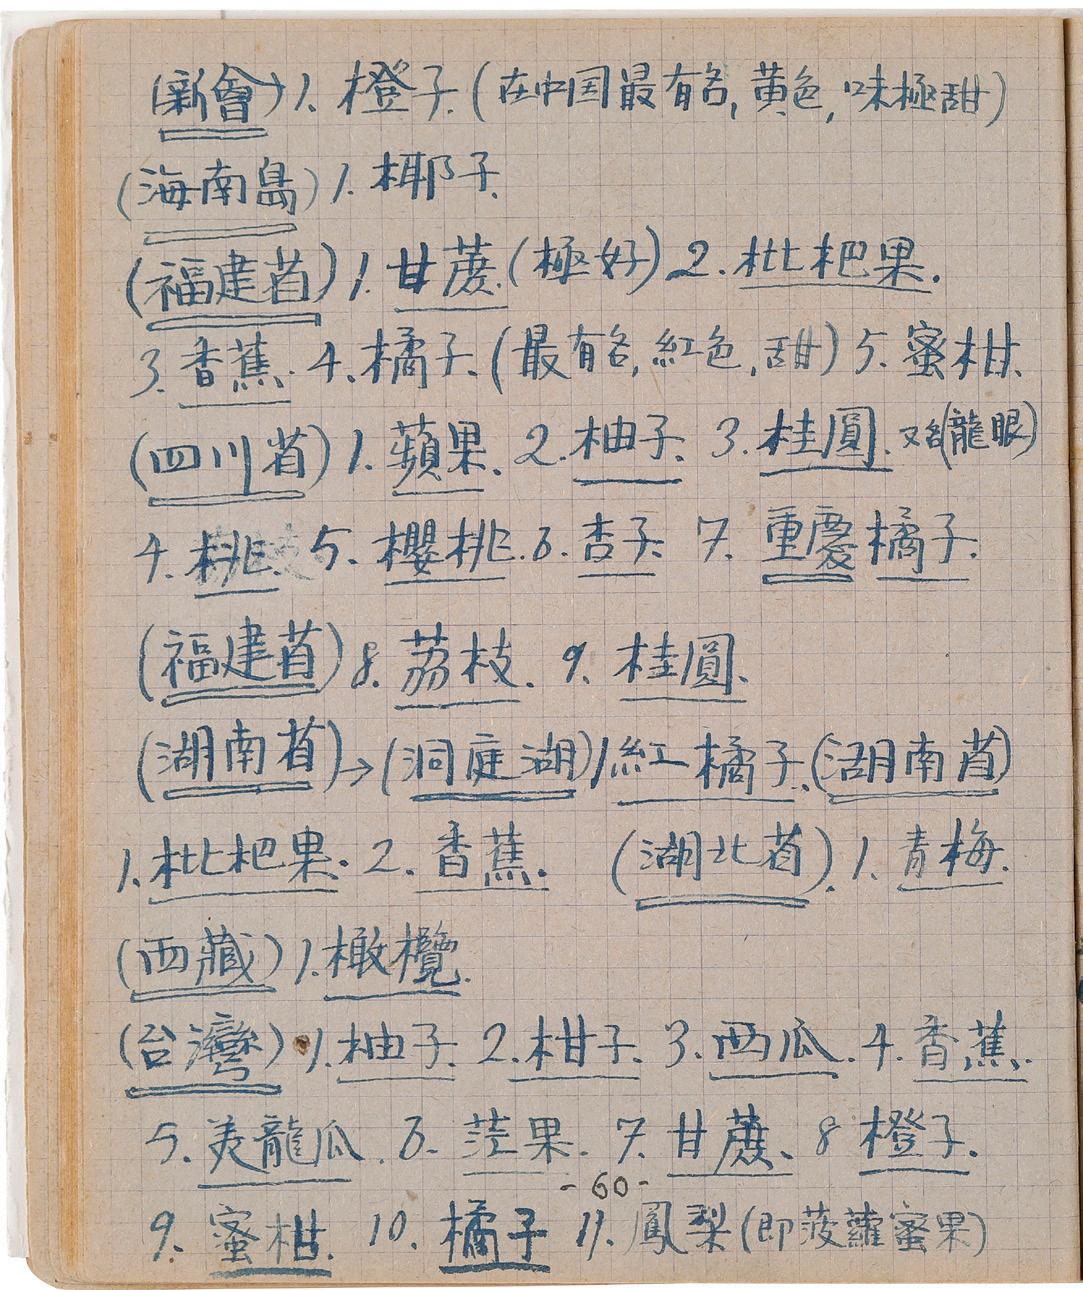 (新會) 1. 橙子. (在中国最有名, 黄色, 味極甜)
(海南島) 1. 椰子.
(福建省) 1. 甘蔗. (極好) 2. 枇杷果.
3. 香蕉. 4. 橘子. (最有名, 紅色, 甜) 5. 蜜柑.
(四川省) 1. 蘋果. 2. 柚子. 3. 桂圓. 又名(龍眼)
4. 桃. 5. 櫻桃. 6. 杏子. 7. 重慶橘子.
(福建省) 8. 荔枝. 9. 桂圓.
(湖南省)→(洞庭湖) 1. 紅橘子. (湖南省)
1. 枇杷果. 2. 香蕉. (湖北省). 1. 青梅.
(西藏) 1. 橄欖.
(台灣) 1. 柚子. 2. 柑子. 3. 西瓜. 4. 香蕉.
5. 美龍瓜. 6. 茫果. 7. 甘蔗. 8 橙子.
-60-
9. 蜜柑. 10. 橘子 11. 鳳梨 (即菠蘿蜜果)